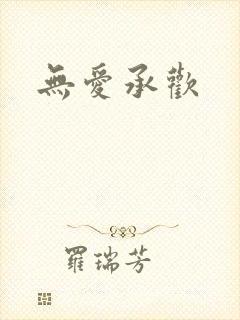 無愛承歡
羅瑞芳